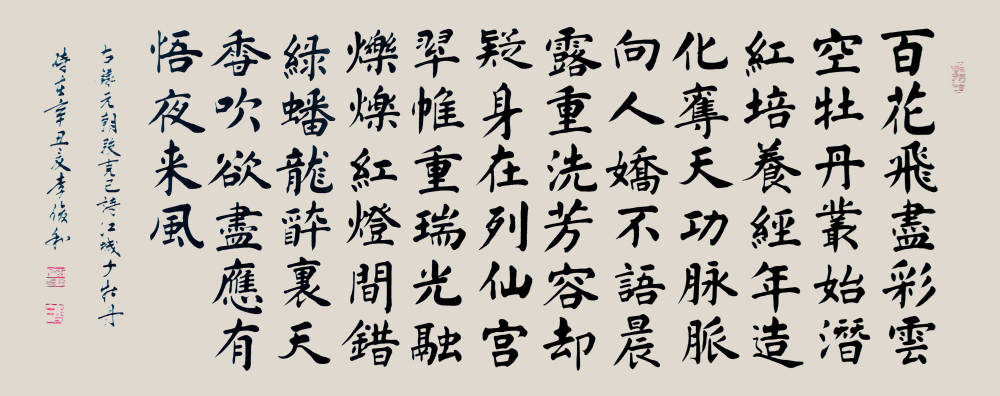 百花飛盡彩雲
空牡丹叢始潛
紅培養經年造
化奪天功脉脈
向人嬌不語晨
露重洗芳容却
疑身在列仙宮
翆帷重瑞光融
爍爍紅燈間錯
綠蟠龍醉裏天
香吹欲盡應有
悟夜来風
元朝張克己詩江城子牡丹
時在辛丑夏李俊和